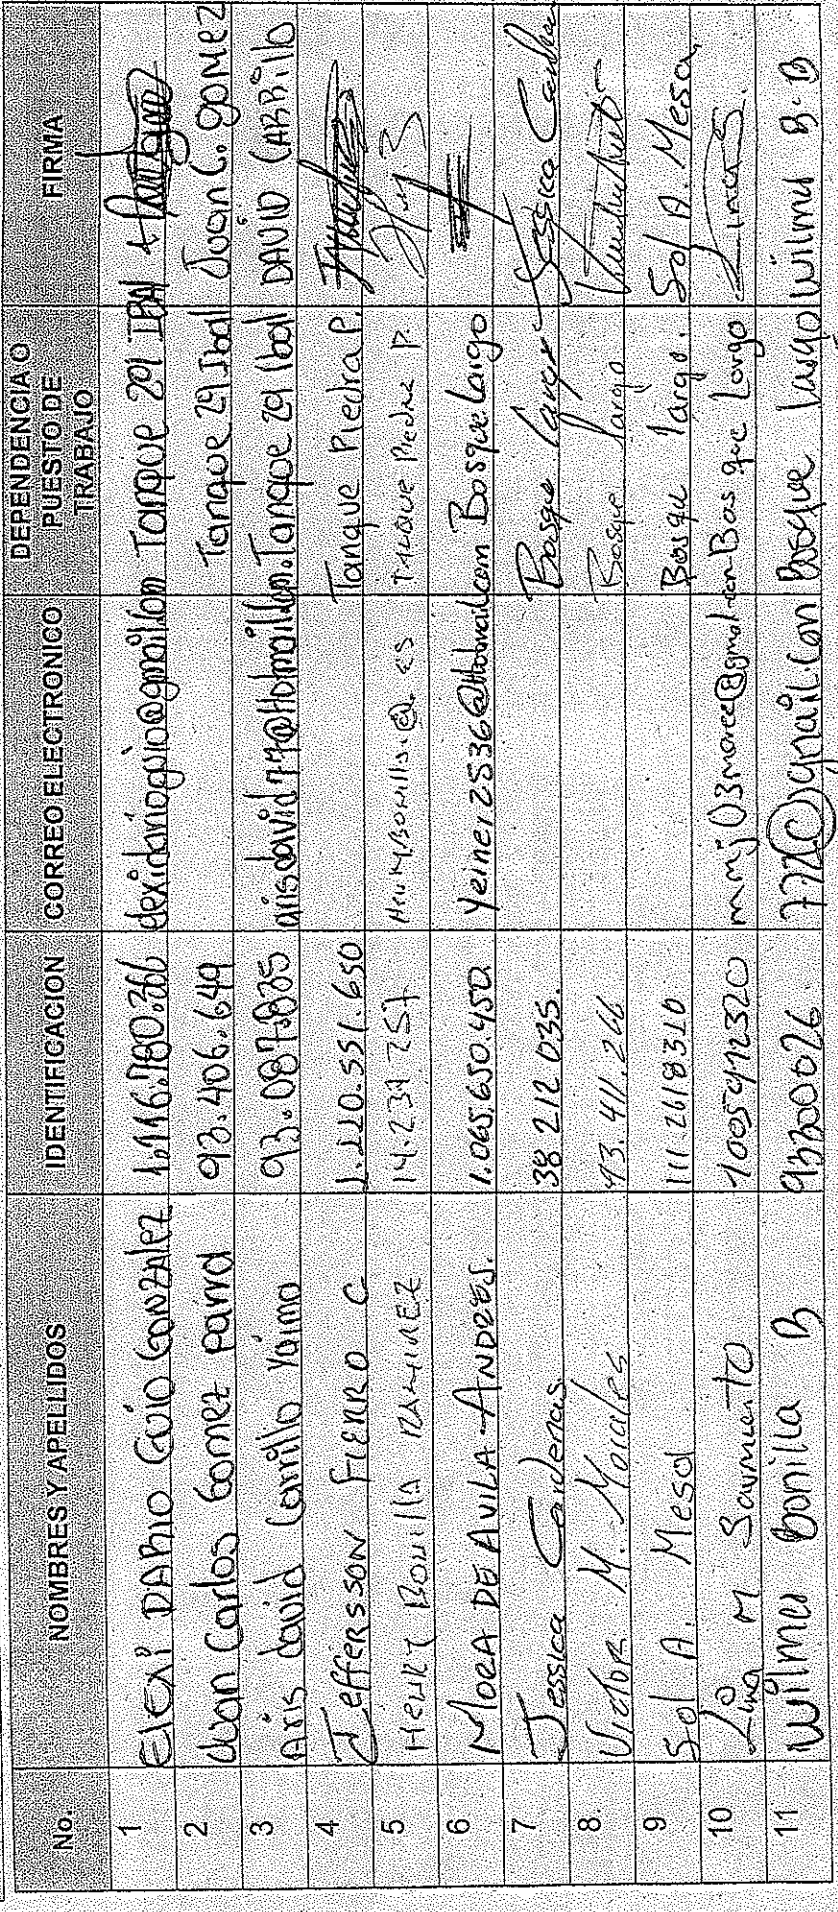 No. NOMBRES Y APELLIDOS IDENTIFICACION CORREO ELECTRONICO DEPENDENCIA O PUESTO DE TRABAJO FIRMA
1 Elexi DARIO Guio GonzAlez 1.116.780.366 elexidarioguio@gmail.com Tanque 29 IBAl
2 Juan Carlos Gomez parra 93.406.649 Tanque 29 Ibal Juan C. gomez
3 Aris david Carrillo Yaima 93.087.835 Tanque 29 Ibal DAVID CARRillo
4 Jeffersson FIERRO C 1.110.551.650 Tanque Piedra P.
5 HENRY BONIlla RAMIREZ 14.239.757 TANQUE Piedra P.
6 MORA DE AVILA ANDRES. 1.065.650.450 Yeiner2536@Hotmail.com Bosque largo
7 Jessica Cardenas 38 212 035. Bosque largo Jessica Cardenas
8 Victor M. Morales 93.411.266 Bosque largo
9 Sol A. Mesa 111 2618310 Bosque largo. Sol A. Mesa
10 Lina M Sarmiento 1005912320 mmj03marce@gmail.com Bosque Largo Lina S.
11 Wilmer bonilla B 93300026 772@gmail.com Bosque largo Wilmer B.B